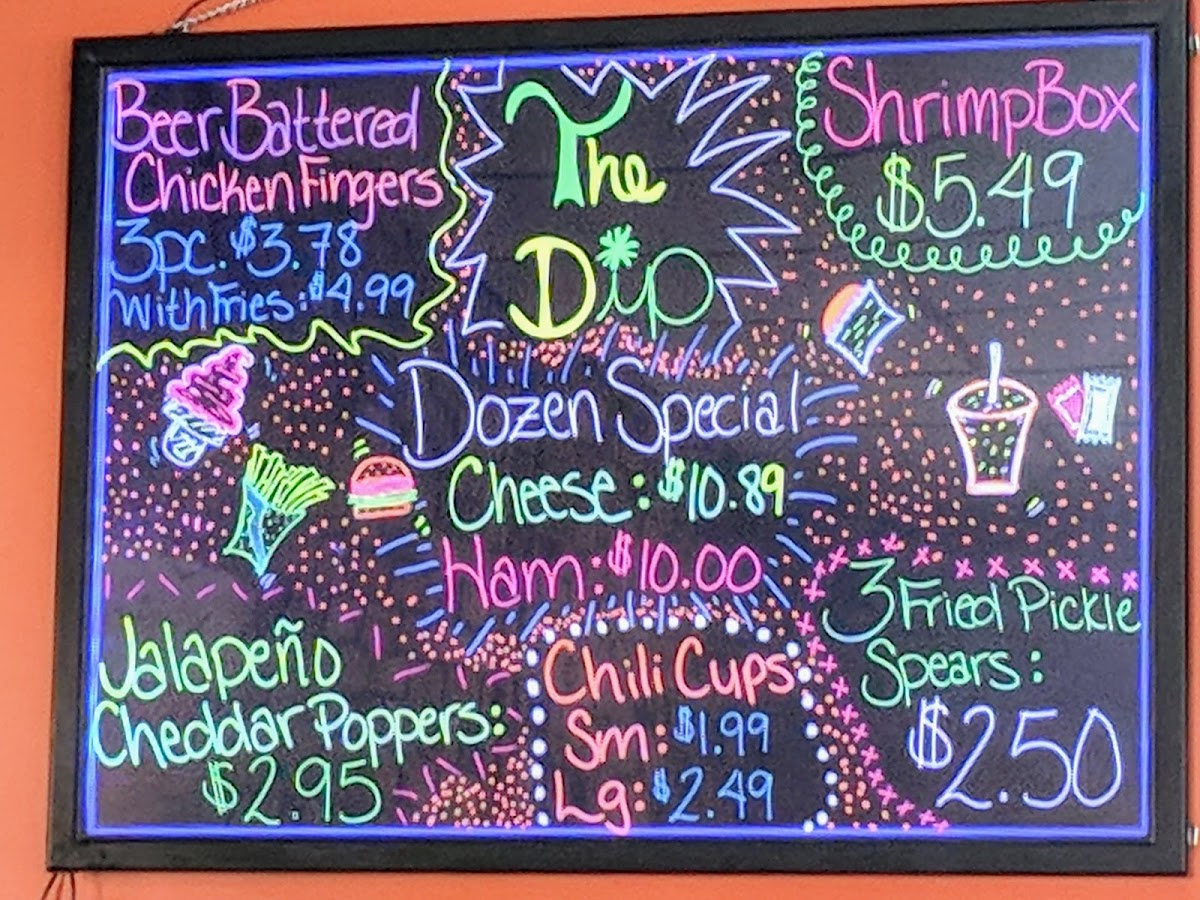 The
Dip
Beer Battered
Chicken Fingers
3pc. $3.78
With Fries: $4.99
Shrimp Box
$5.49
Dozen Special
Cheese: $10.89
Ham: $10.00
Jalapeño
Cheddar Poppers:
$2.95
Chili Cups
Sm: $1.99
Lg: $2.49
3 Fried Pickle
Spears:
$2.50